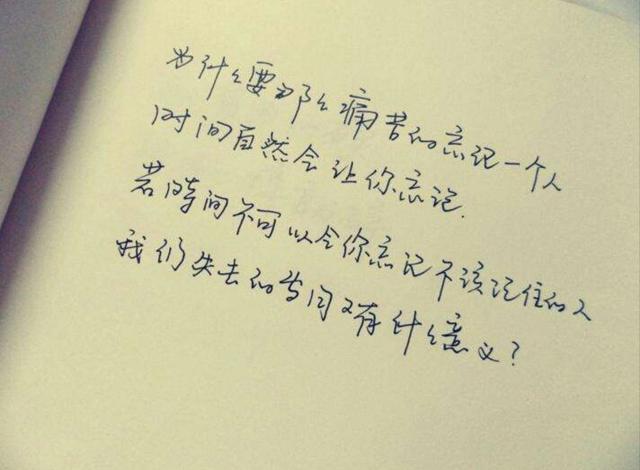 为什么要那么痛苦的忘记一个人
时间自然会让你忘记.
若时间不可以令你忘记不该记住的人
我们失去的岁月又有什么意义?